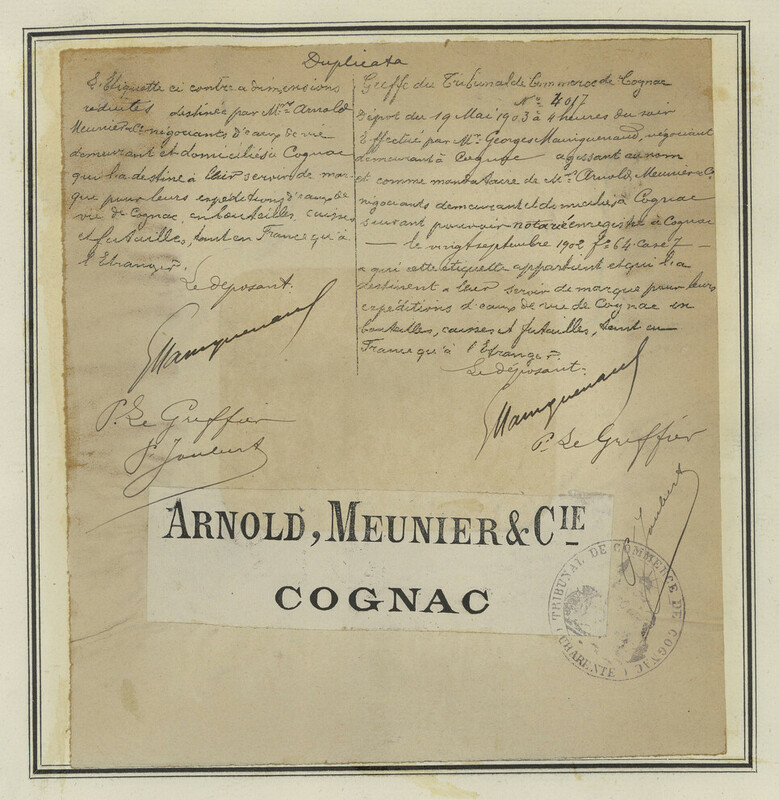 Duplicata
L'Etiquette ci contre a dimensions
réduites destinée par Mrs Arnold
Meunier & Cie négociants d'eaux de vie
demeurant et domiciliés à Cognac
qui l'a destine à leur servir de mar-
que pour leurs expéditions d'eaux de
vie de Cognac, en bouteilles, caisses
et futailles, tant en France qu'à
l'Etranger.
Le déposant.
P. Le Greffier
J. Joubert
Greffe du Tribunal de Commerce de Cognac
No 4017
Dépôt du 19 Mai 1903 à 4 heures du soir
Effectué par Mr Georges Mauriquenaud, négociant
demeurant à Cognac agissant au nom
et comme mandataire de Mrs Arnold, Meunier & Cie
négociants demeurant et domiciliés à Cognac
suivant pouvoir notarié enregistré à Cognac
— le vingt septembre 1902 fo 64 Case 7 —
a qui cette étiquette appartient et qui l'a
destinent a leur servir de marque pour leurs
expéditions d'eaux de vie de Cognac en
bouteilles, caisses et futailles, tant en
France qu'à l'Etranger.
Le déposant.
P. Le Greffier
J. Joubert
ARNOLD, MEUNIER & CIE
COGNAC
TRIBUNAL DE COMMERCE DE COGNAC
(CHARENTE)